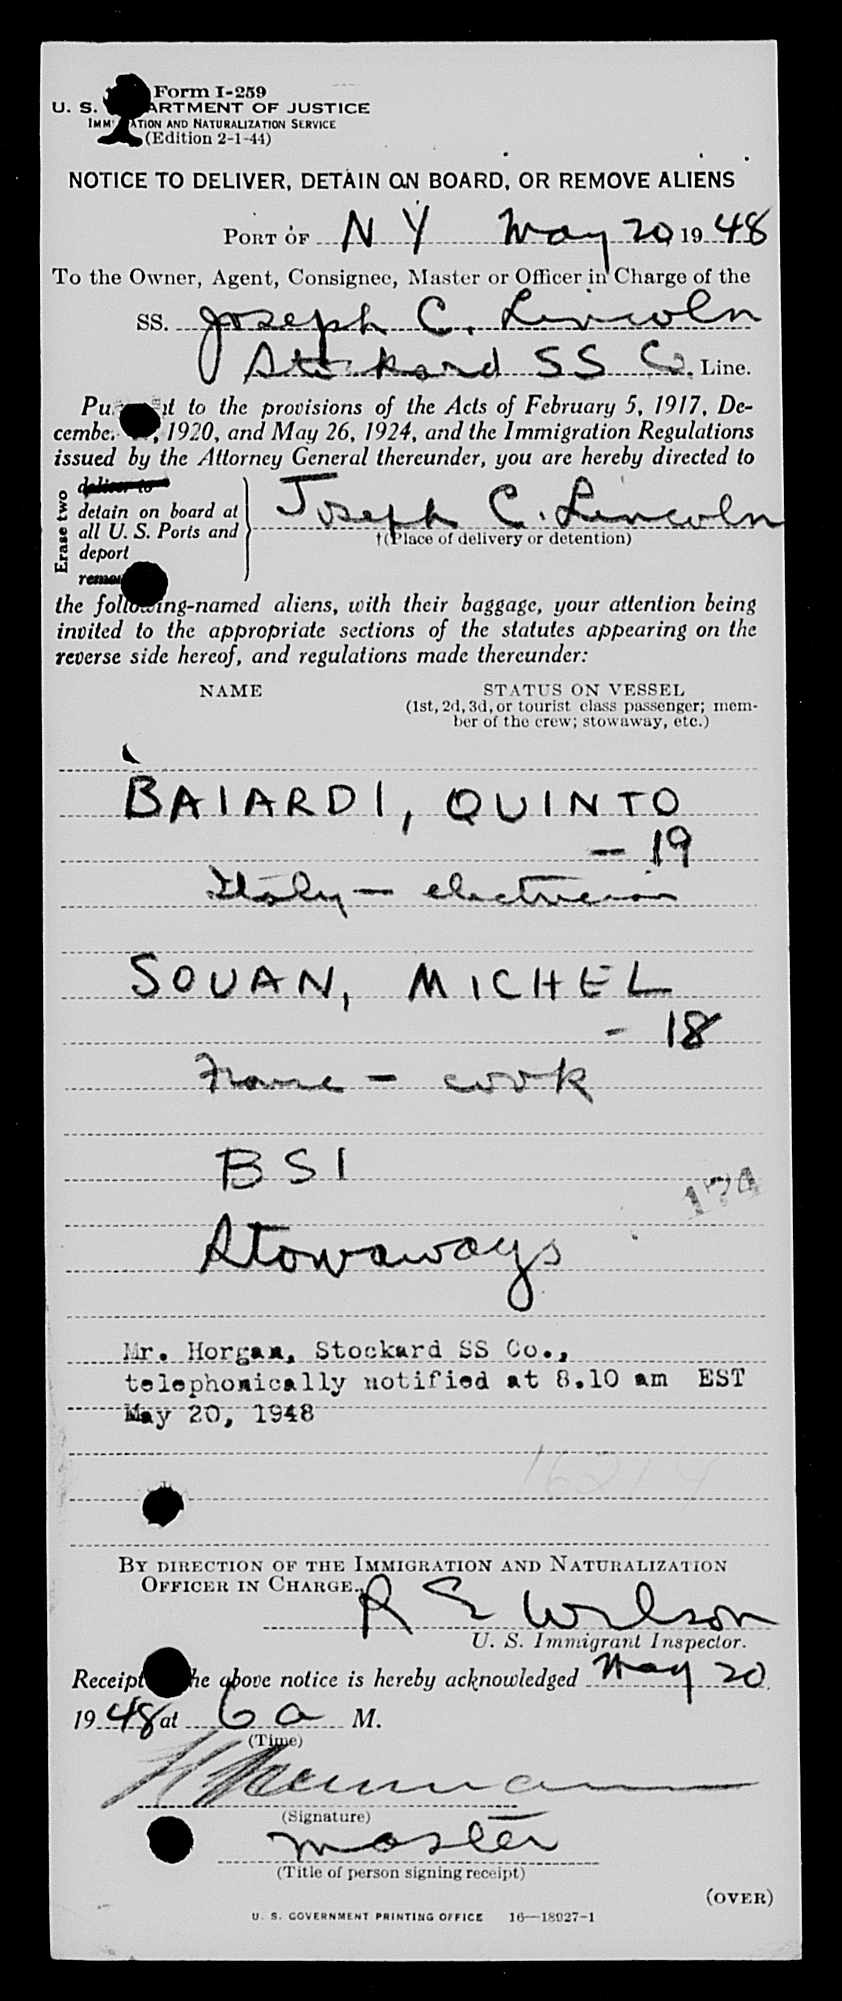 Form I-259
U. S. ARTMENT OF JUSTICE
IMM ATION AND NATURALIZATION SERVICE
(Edition 2-1-44)
NOTICE TO DELIVER, DETAIN ON BOARD, OR REMOVE ALIENS
PORT OF N Y May 20 19 48
To the Owner, Agent, Consignee, Master or Officer in Charge of the
SS. Joseph C. Lincoln
Stockard SS Co. Line.
Pu t to the provisions of the Acts of February 5, 1917, De-
cembe , 1920, and May 26, 1924, and the Immigration Regulations
issued by the Attorney General thereunder, you are hereby directed to
Erase two
deliver to
detain on board at
all U. S. Ports and
deport
remo
Joseph C. Lincoln
†(Place of delivery or detention)
the following-named aliens, with their baggage, your attention being
invited to the appropriate sections of the statutes appearing on the
reverse side hereof, and regulations made thereunder:
NAME STATUS ON VESSEL
(1st, 2d, 3d, or tourist class passenger; mem-
ber of the crew; stowaway, etc.)
BAIARDI, QUINTO
- 19
Italy - electrician
SOUAN, MICHEL
- 18
France - cook
BSI
174
Stowaways
Mr. Horgan, Stockard SS Co.,
telephonically notified at 8.10 am EST
May 20, 1948
BY DIRECTION OF THE IMMIGRATION AND NATURALIZATION
OFFICER IN CHARGE.
R E Wilson
U. S. Immigrant Inspector.
Receipt he above notice is hereby acknowledged May 20
19 48 at 6 a M.
(Time)
(Signature)
master
(Title of person signing receipt)
(OVER)
U. S. GOVERNMENT PRINTING OFFICE 16—18027-1